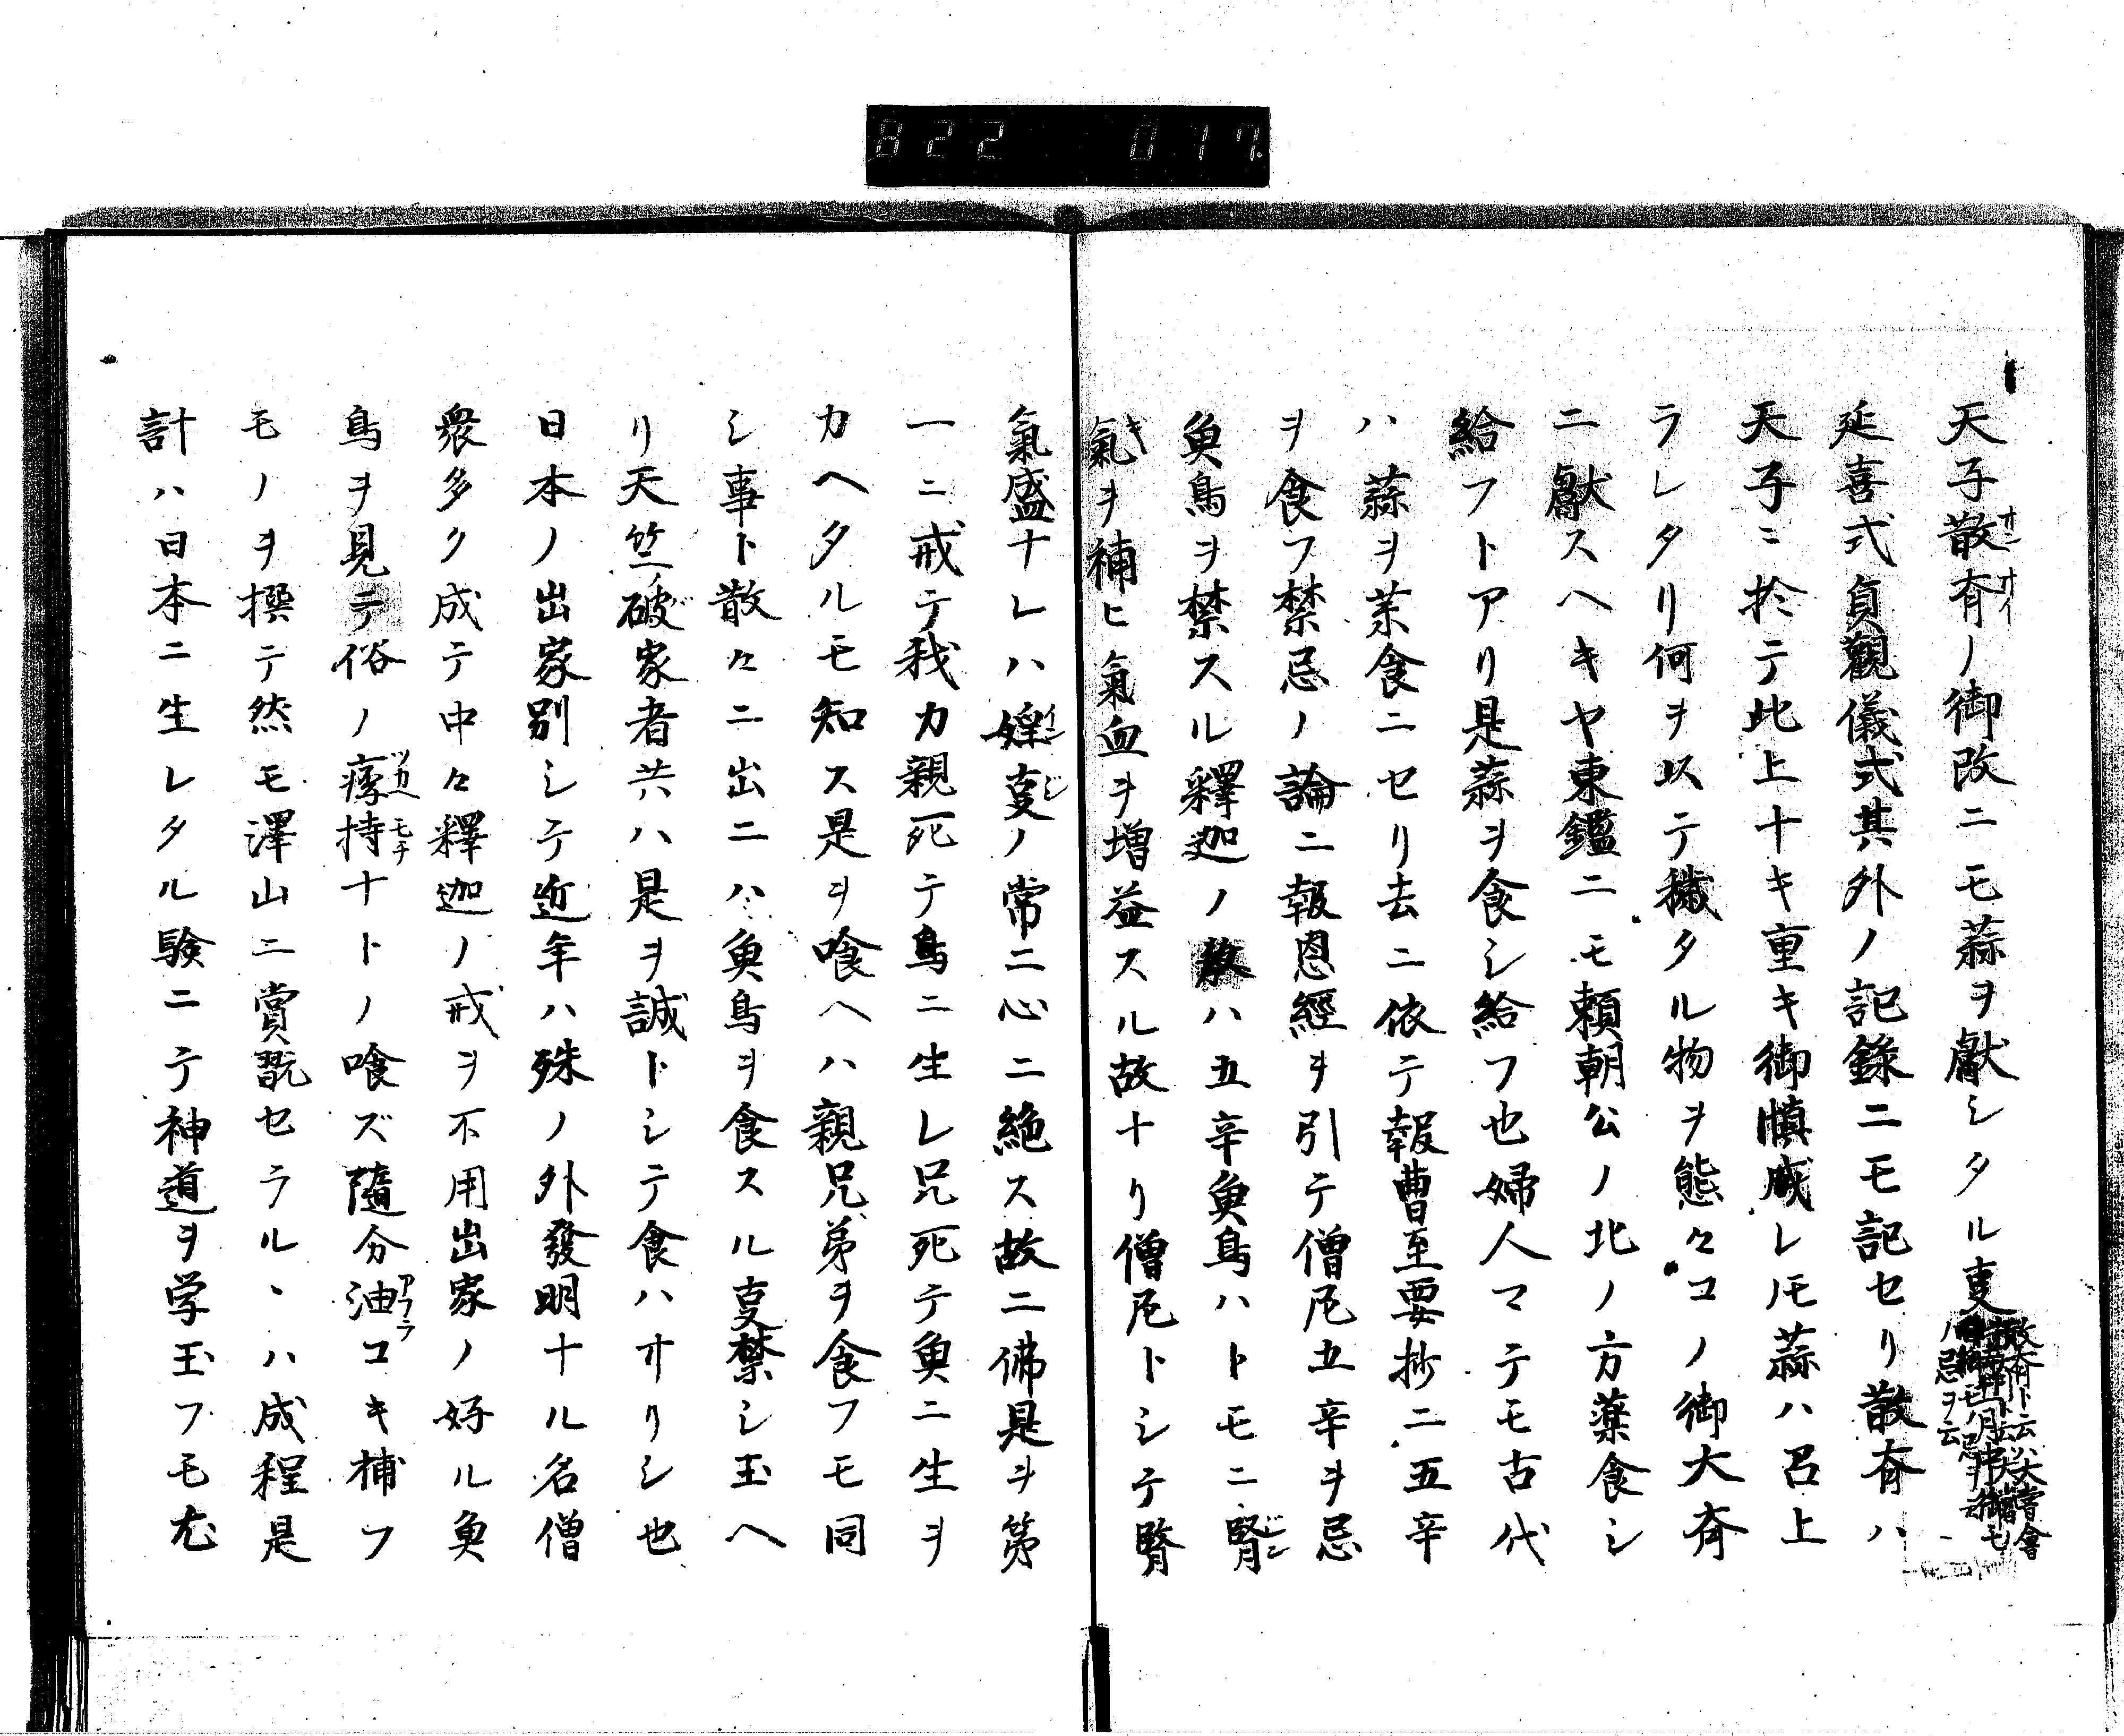 822 017.
天子散斉ノ御改ニモ蒜ヲ獻シタル㕝
延喜式貞觀儀式其外ノ記録ニモ記セリ散斉ハ
天子ニ於テ此上ナキ重キ御慎成レ𪜈蒜ハ召上
ラレタリ何ヲ以テ穢タル物ヲ態々コノ御大斉
ニ獻スヘキヤ東鑑ニモ頼朝公ノ北ノ方藥食シ
給フトアリ是蒜ヲ食シ給フ也婦人マテモ古代
ハ蒜ヲ菜食ニセリ去ニ依テ報曹至要抄ニ五辛
ヲ食フ禁忌ノ論ニ報恩經ヲ引テ僧尼五辛ヲ忌
魚鳥ヲ禁スル釋迦ノ教ハ五辛魚鳥ハトモニ腎
氣ヲ補ヒ氣血ヲ増益スル故ナリ僧尼トシテ腎
氣盛ナレハ婬㕝ノ常ニ心ニ絶ス故ニ佛是ヲ第
一ニ戒テ我カ親死テ鳥ニ生レ兄死テ魚ニ生ヲ
カヘタルモ知ス是ヲ喰ヘハ親兄弟ヲ食フモ同
シ事ト散々ニ出ニハ魚鳥ヲ食スル㕝禁シ玉ヘ
リ天竺破家者共ハ是ヲ誠トシテ食ハサリシ也
日本ノ出家別シテ近年ハ殊ノ外發明ナル名僧
衆多ク成テ中々釋迦ノ戒ヲ不用出家ノ好ル魚
鳥ヲ見テ俗ノ痞持ナトノ喰ズ隨分油コキ補フ
モノヲ撰テ然モ澤山ニ賞翫セラルヽハ成程是
計ハ日本ニ生レタル驗ニテ神道ヲ学玉フモ尤